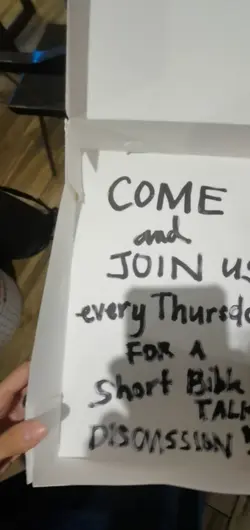 COME
and
JOIN US
every Thursda
FOR A
Short Bible
TALK
DISCUSSION